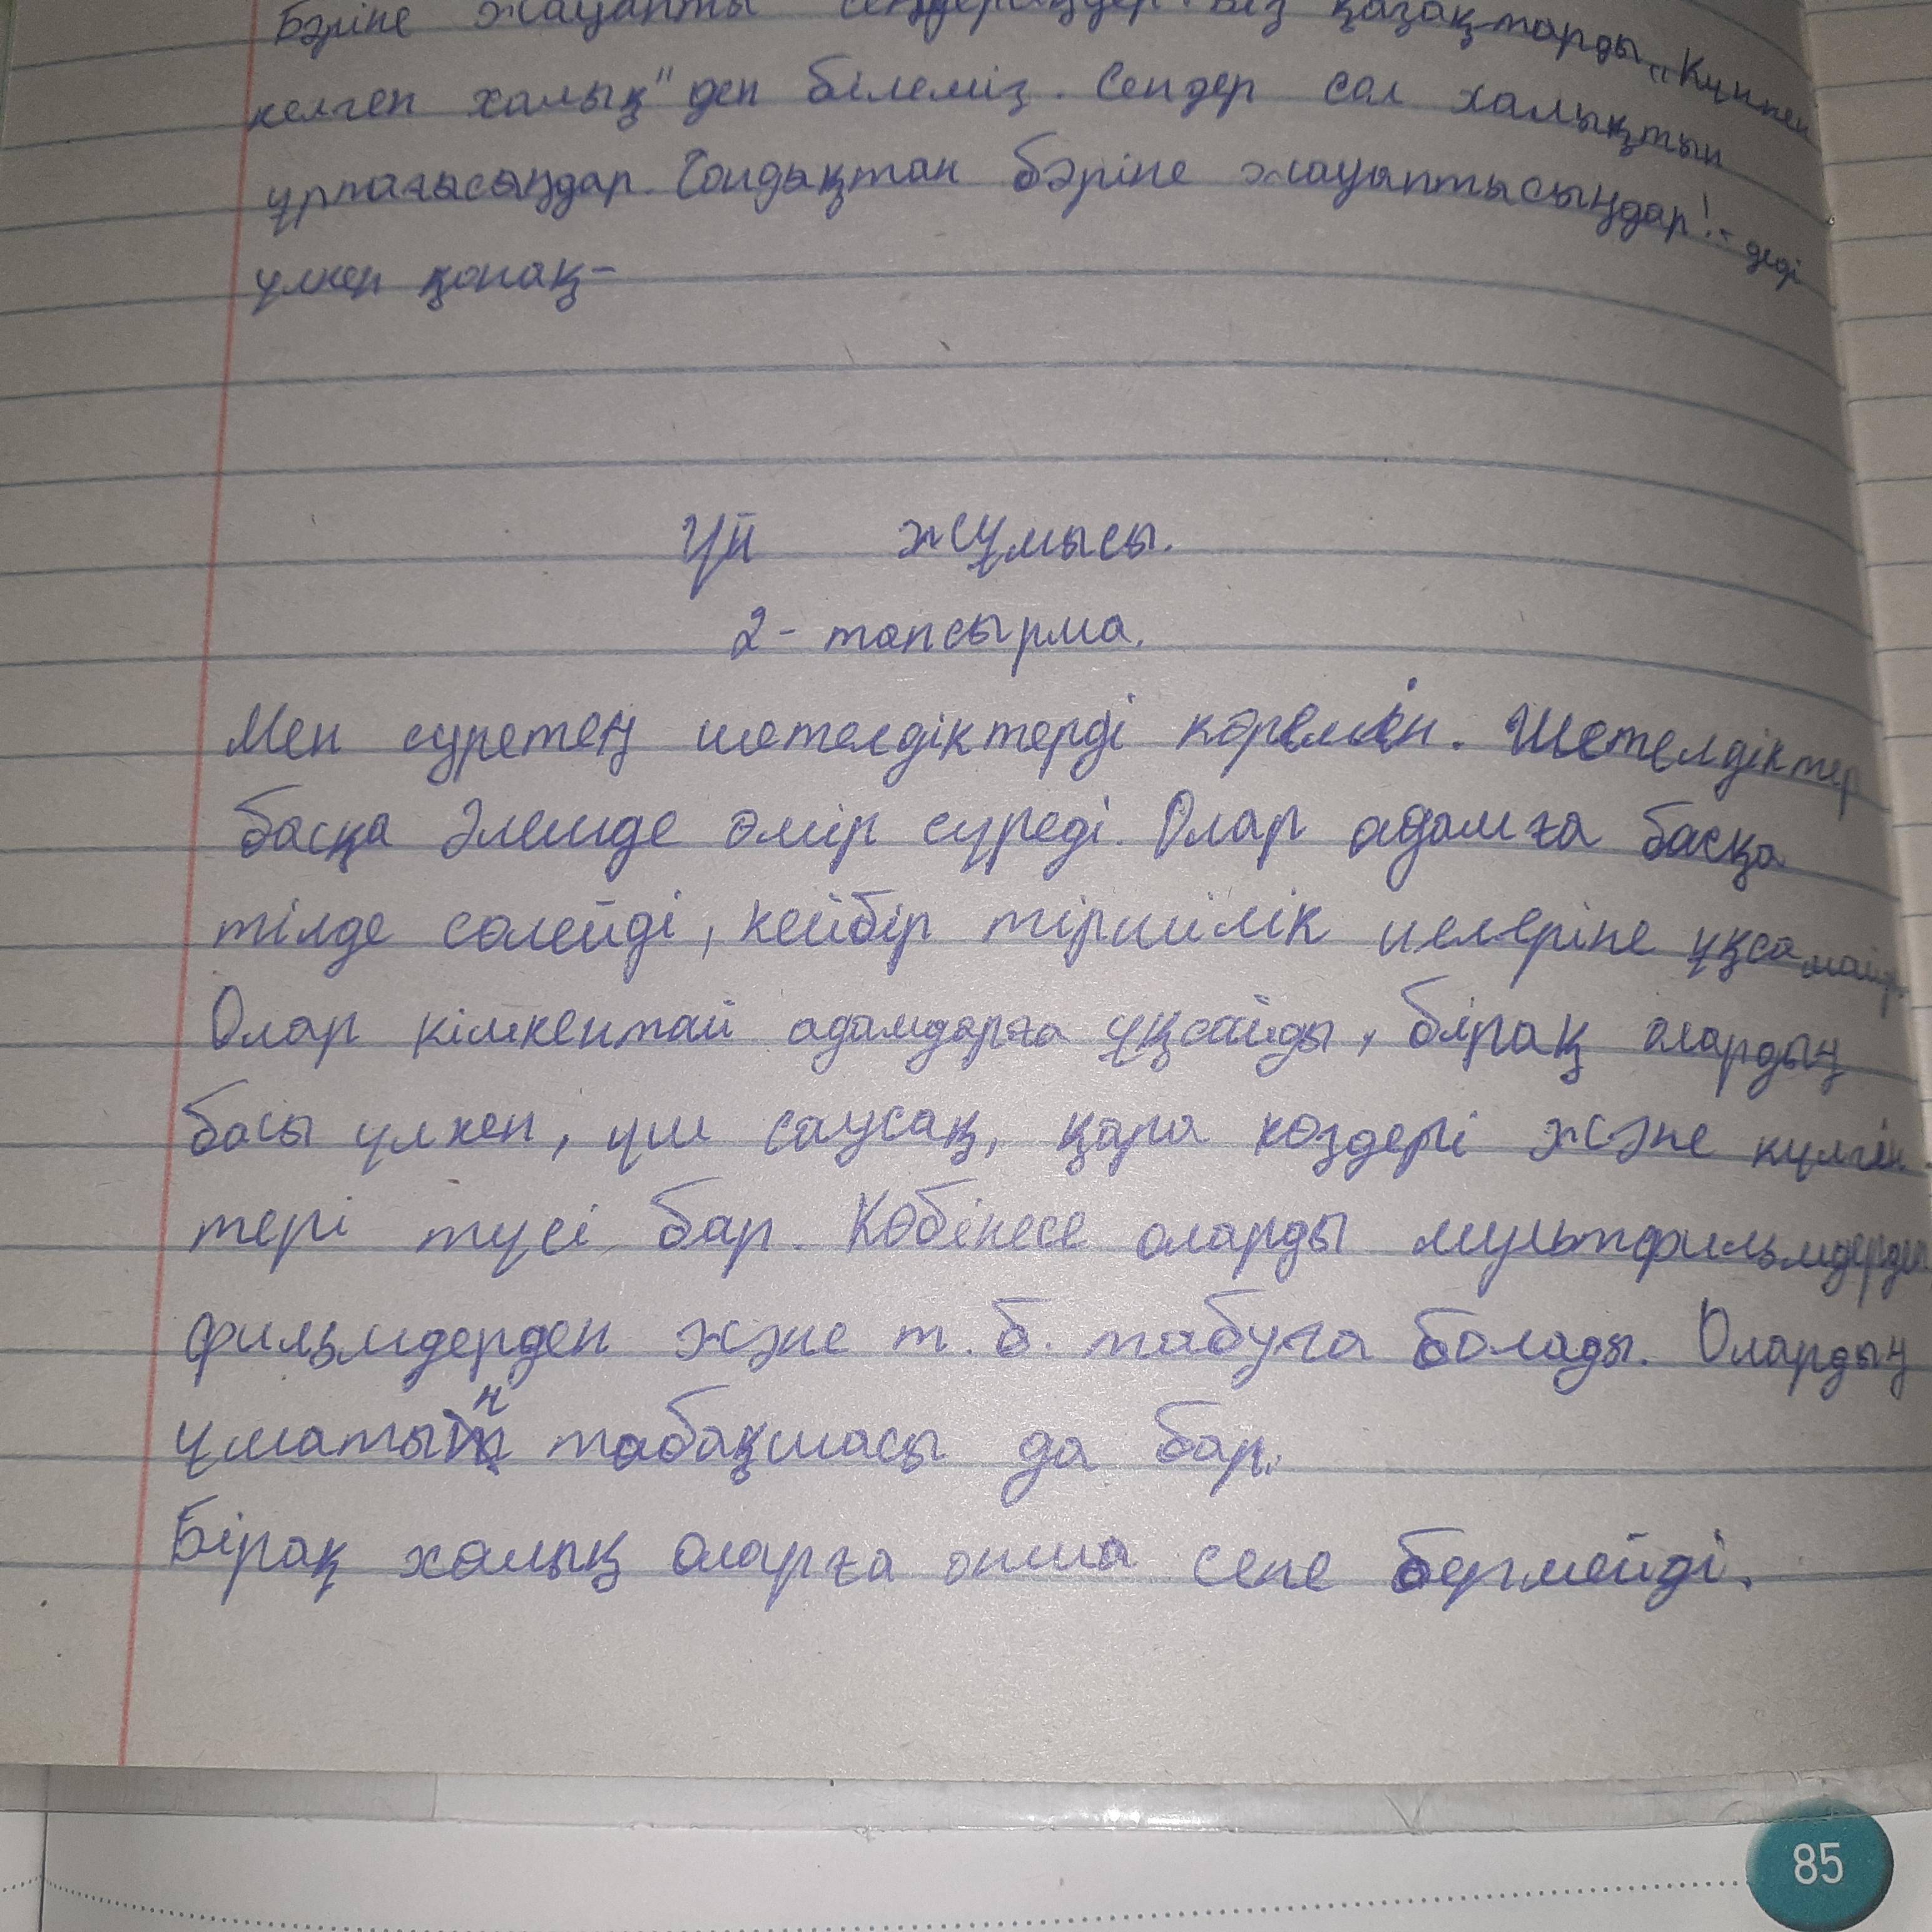 Бәріне жауапты сендерсіңдер. Біз қазақтарды „Күннен
келген халық" деп білеміз. Сендер сол халықтың
ұрпағысыңдар. Сондықтан бәріне жауаптысыңдар! - деді
үлкен қонақ-
Үй жұмысы.
2- тапсырма.
Мен суретең шетелдіктерді көремін. Шетелдіктер
басқа әлемде өмір сүреді. Олар адамға басқа
тілде сөлейді, кейбір тіршілік иелеріне ұқсамайды.
Олар кішкентай адамдарға ұқсайды, бірақ олардың
басы үлкен, үш саусақ, қара көздері және күлгін
тері түсі бар. Көбінесе оларды мультфильмдерден
фильмдерден және т.б. табуға болады. Олардың
ұшатын табақшасы да бар.
Бірақ халық оларға онша сене бермейді.
85